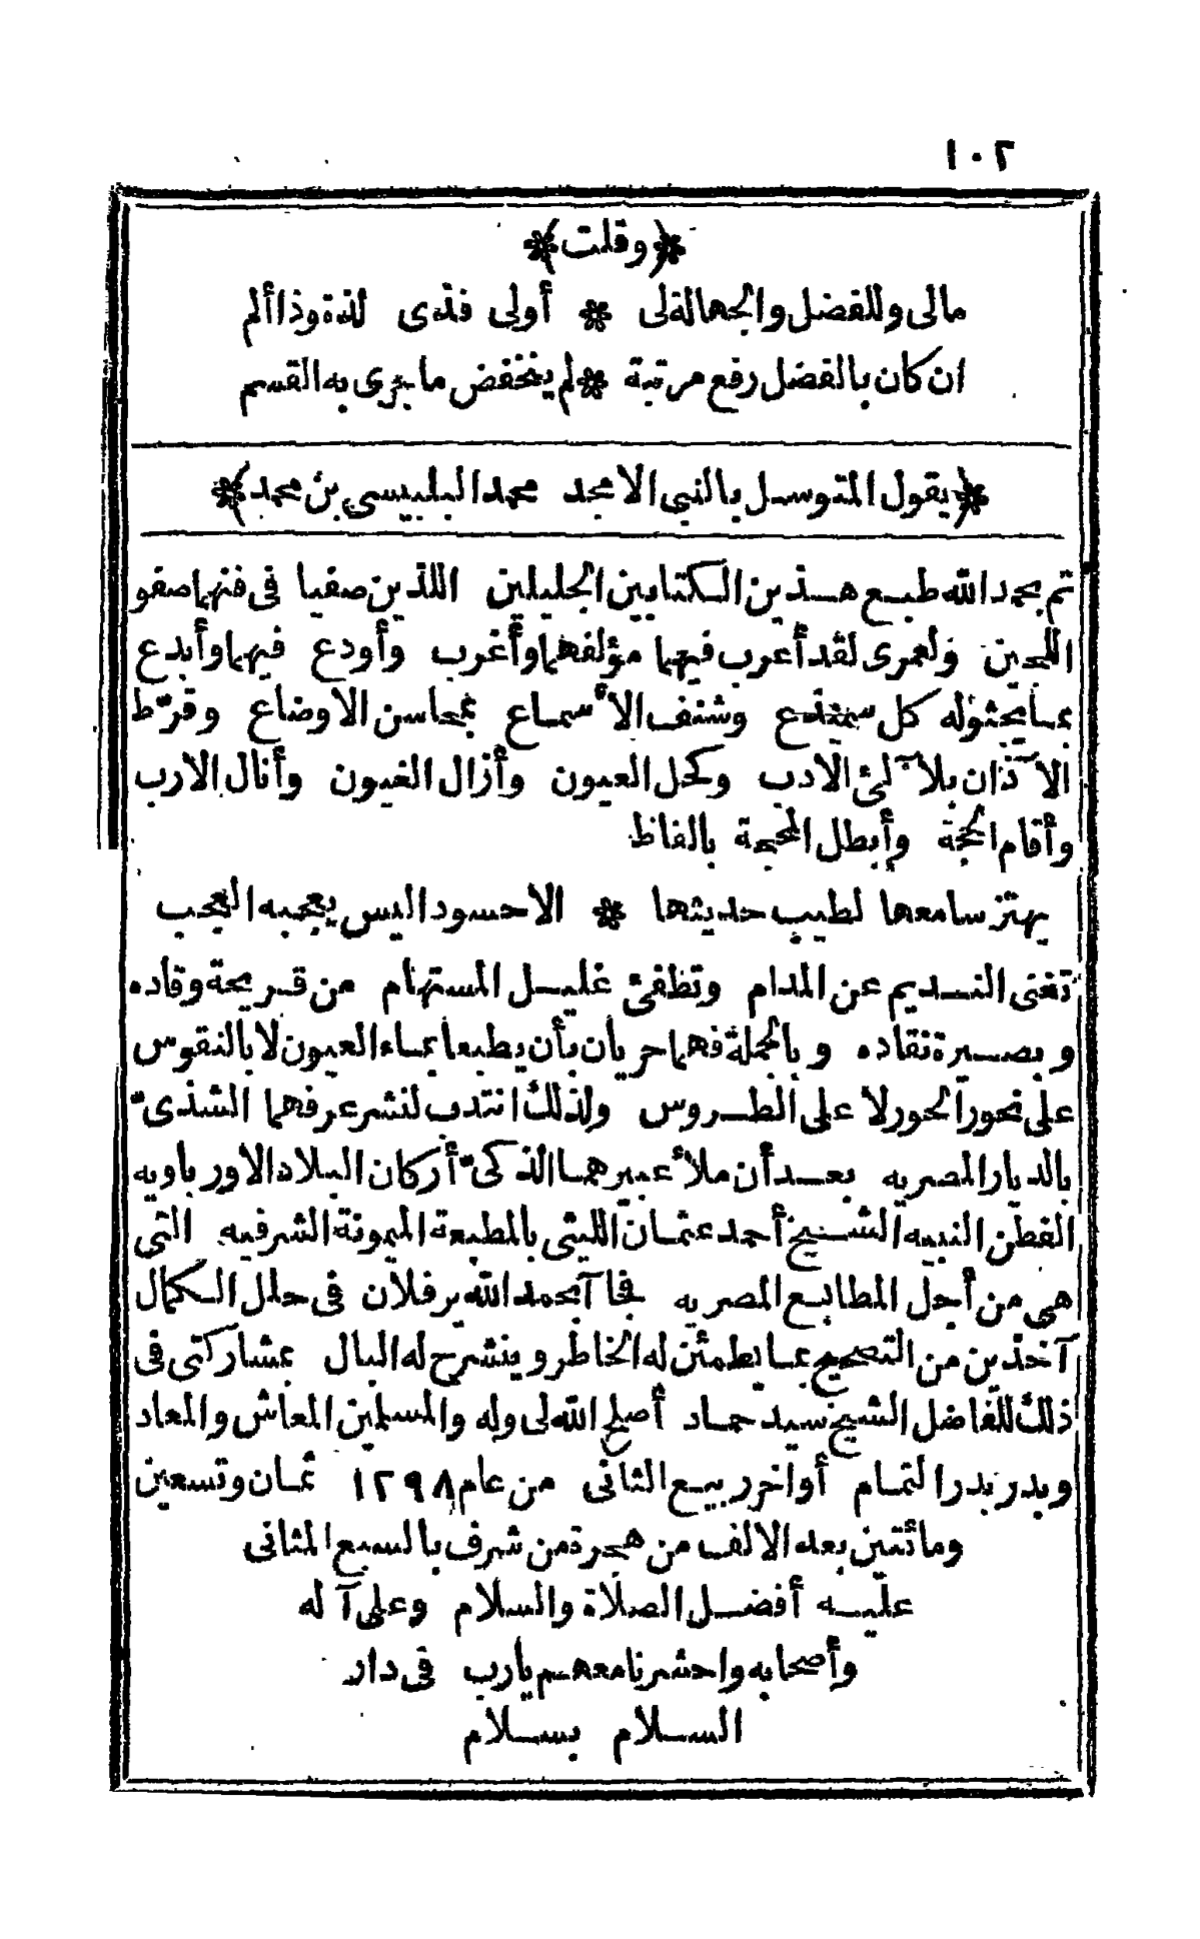 ١٠٢
﴿وقلت﴾
مالى وللفضل والجهالة لى * أولى فذى لذة وذا ألم
ان كان بالفضل رفع مرتبة * لم ينخفض ما جرى به القسم
﴿يقول المتوسل بالنبى الامجد محمد البلبيسى بن محمد﴾
تم بحمد الله طبع هذين الكتابين الجليلين اللذين صفيا فى فنهما صفو
اللجين ولعمرى لقد أعرب فيهما مؤلفهما وأغرب وأودع فيهما وأبدع
بما يجثوله كل سميذع وشنف الأسماع بمحاسن الاوضاع وقرّط
الآذان بلآلئ الادب وكحل العيون وأزال الغيون وأنال الارب
وأقام الحجة وأبطل المحجة بالفاظ
يهتز سامعها لطيب حديثها * الا حسودا ليس يعجبه العجب
تغنى النديم عن المدام وتطفئ غليل المستهام من قريحة وقاده
وبصيرة نقاده وبالجملة فهما حريان بأن يطبعا بماء العيون لا بالنقوس
على نحور الحور لا على الطروس ولذلك انتدب لنشر عرفهما الشذىّ
بالديار المصريه بعد أن ملأ عبيرهما الذكىّ أركان البلاد الاورباويه
الفطن النبيه الشيخ أحمد عثمان الليثى بالمطبعة الميمونة الشرفيه التى
هى من أجل المطابع المصريه فجاآ بحمد الله يرفلان فى حلل الكمال
آخذين من التصحيح بما يطمئن له الخاطر وينشرح له البال بمشاركتى فى
ذلك للفاضل الشيخ سيد حماد أصلح الله لى وله والمسلمين المعاش والمعاد
وبدر بدر التمام أواخر ربيع الثانى من عام ١٢٩٨ ثمان وتسعين
ومائتين بعد الالف من هجرة من شرف بالسبع المثانى
عليه أفضل الصلاة والسلام وعلى آله
وأصحابه واحشرنا معهم يارب فى دار
السلام بسلام